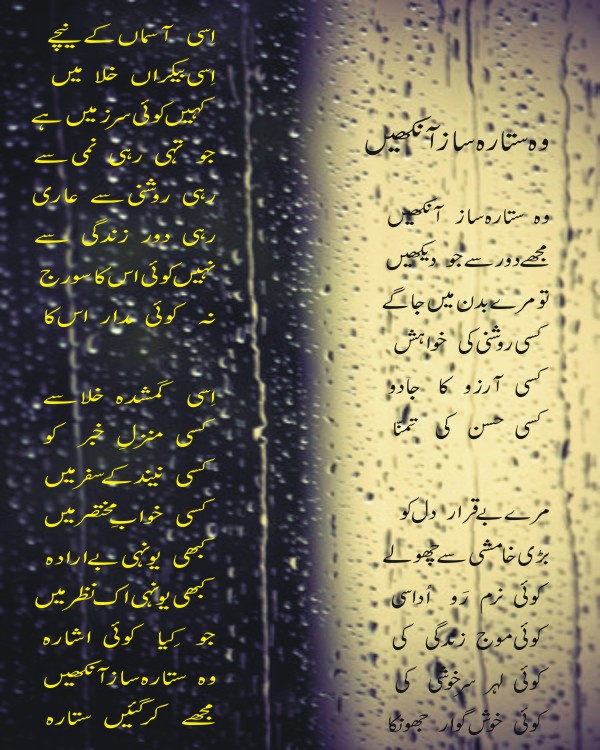 وہ ستارہ ساز آنکھیں
وہ ستارہ ساز آنکھیں
مجھے دور سے جو دیکھیں
تو مرے بدن میں جاگے
کسی روشنی کی خواہش
کسی آرزو کا جادو
کسی حسن کی تمنّا
مرے بے قرار دل کو
بڑی خامشی سے چھولے
کوئی نرم رَو اُداسی
کوئی موج زندگی کی
کوئی لہر سرخوشی کی
کوئی خوش گوار جھونکا
اِسی آسماں کے نیچے
اِسی بیکراں خلا میں
کہیں کوئی سرزمیں ہے
جو تہی رہی نمی سے
رہی روشنی سے عاری
رہی دور زندگی سے
نہیں کوئی اس کا سورج
نہ کوئی مدار اس کا
اِسی گمشدہ خلا سے
کسی منزلِ خبر کو
کسی نیند کے سفر میں
کسی خوابِ مختصر میں
کبھی یونہی بے ارادہ
کبھی یونہی اک نظر میں
جو کِیا کوئی اشارہ
وہ ستارہ ساز آنکھیں
مجھے کر گئیں ستارہ